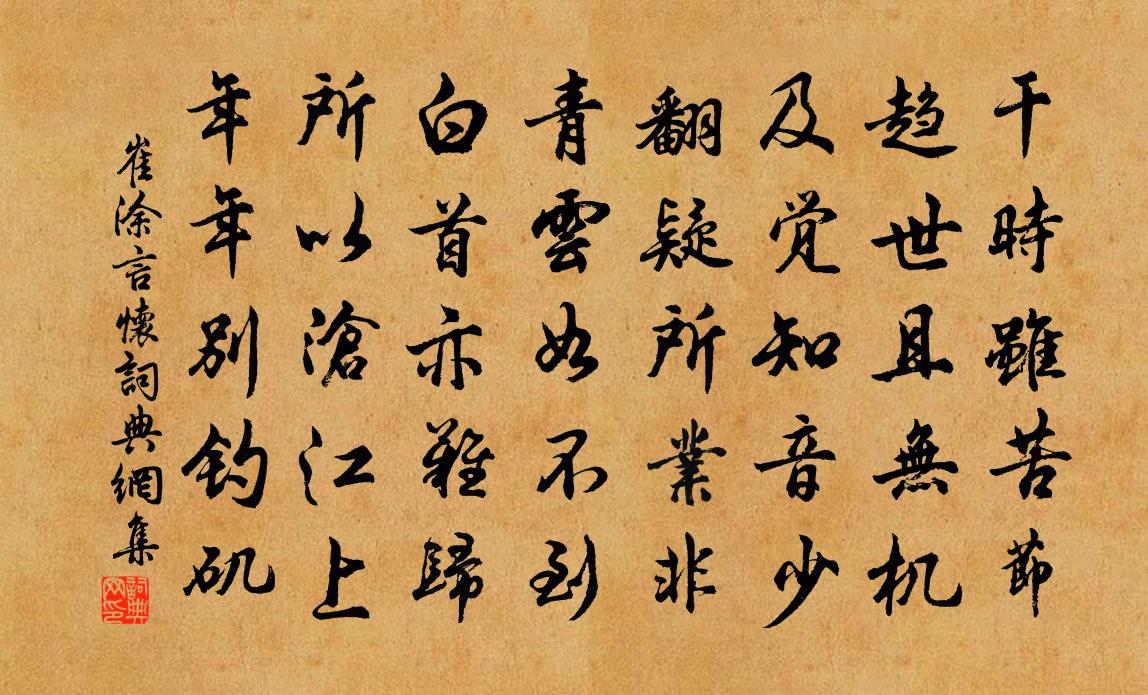 干時雖苦節
趨世且無机
及觉知音少
翻疑所業非
青雲如不到
白首亦難歸
所以滄江上
年年別釣矶
崔涂言懷詞典網集
詞典网印